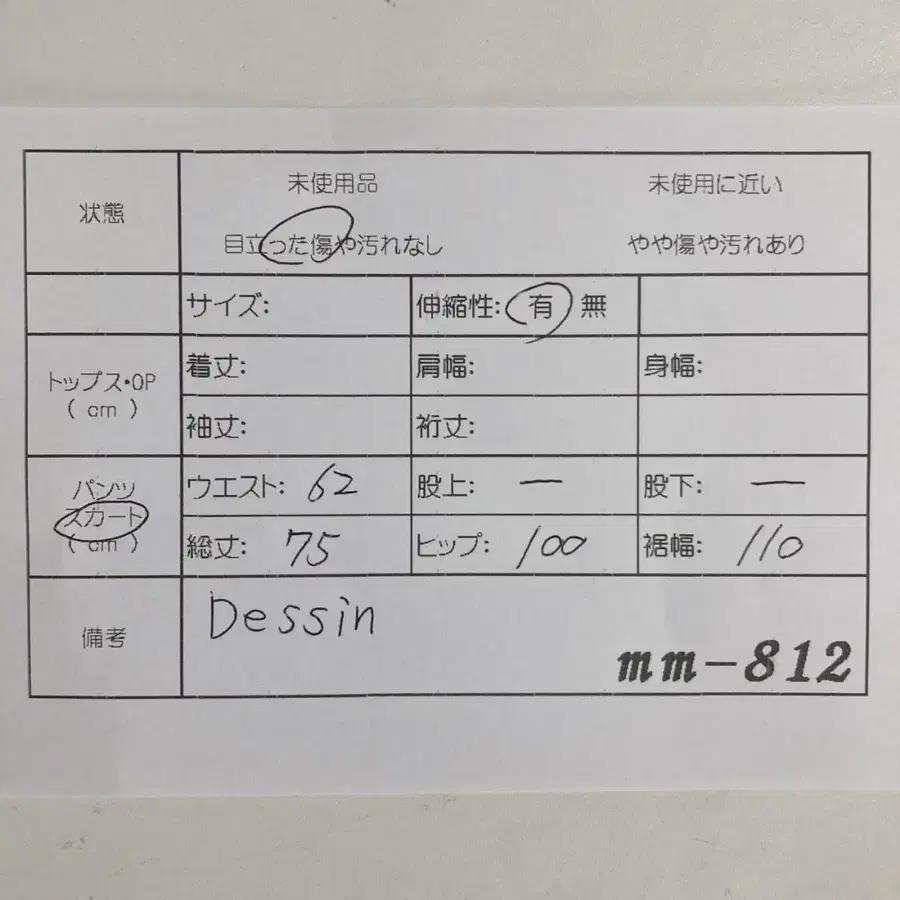 状態
未使用品 未使用に近い
目立った傷や汚れなし やや傷や汚れあり
サイズ: 伸縮性: 有 無
トップス・OP
( cm )
着丈: 肩幅: 身幅:
袖丈: 裄丈:
パンツ
スカート
( cm )
ウエスト: 62 股上: ー 股下: ー
総丈: 75 ヒップ: 100 裾幅: 110
備考
Dessin
mm-812